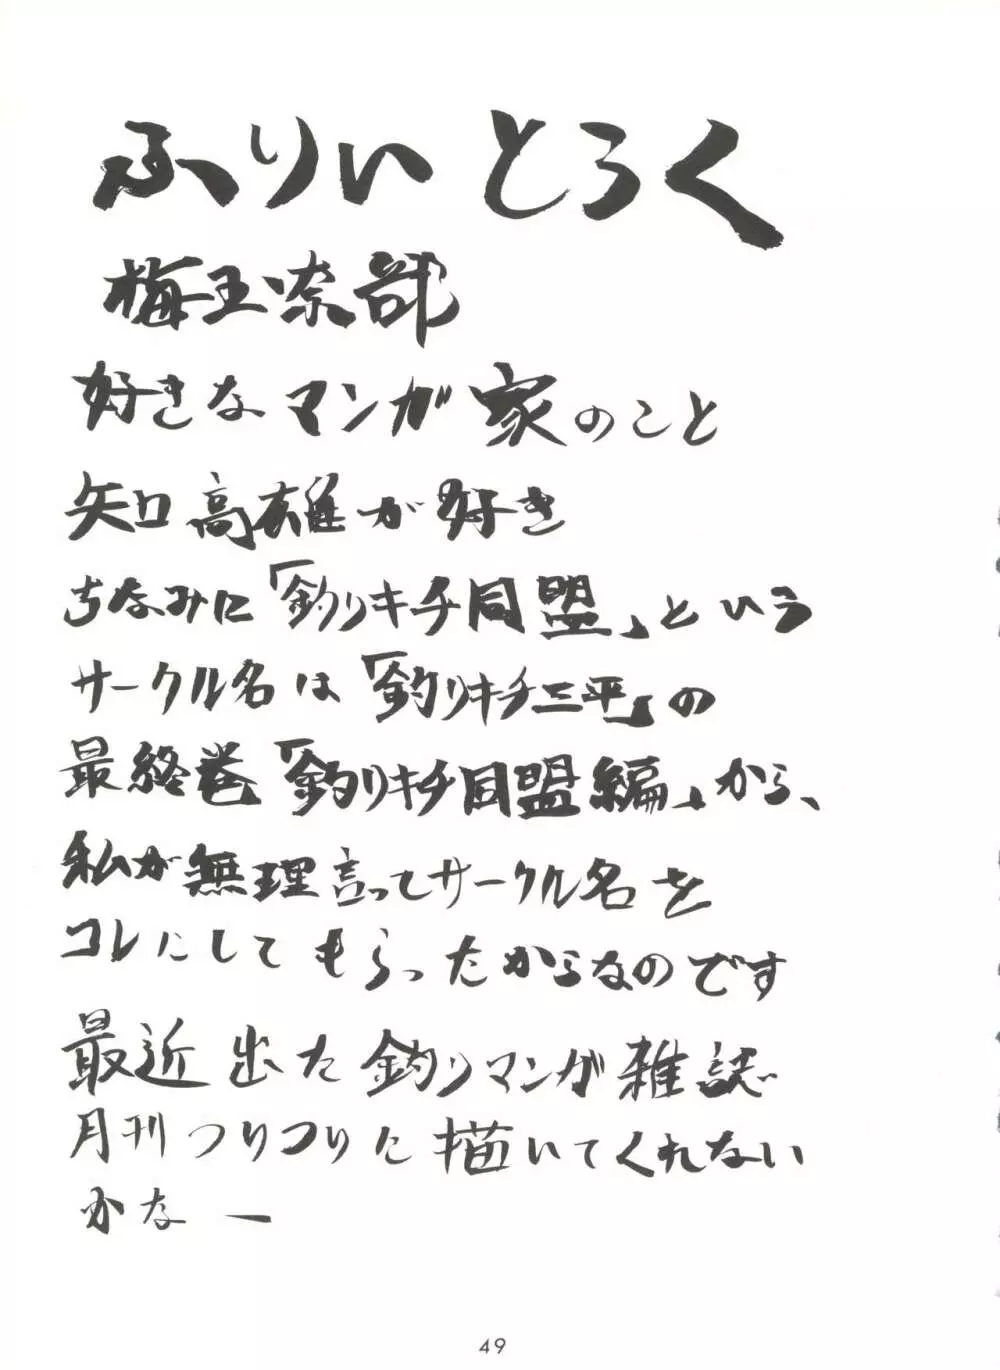 ふりぃとろく
梅玉奈部
好きなマンガ家のこと
矢口高雄が好き
ちなみに「釣りキチ同盟」という
サークル名は「釣りキチ三平」の
最終巻「釣りキチ同盟編」から、
私が無理言ってサークル名を
コレにしてもらったからなのです
最近出た釣りマンガ雑誌
月刊つりコリに描いてくれない
かなー
49